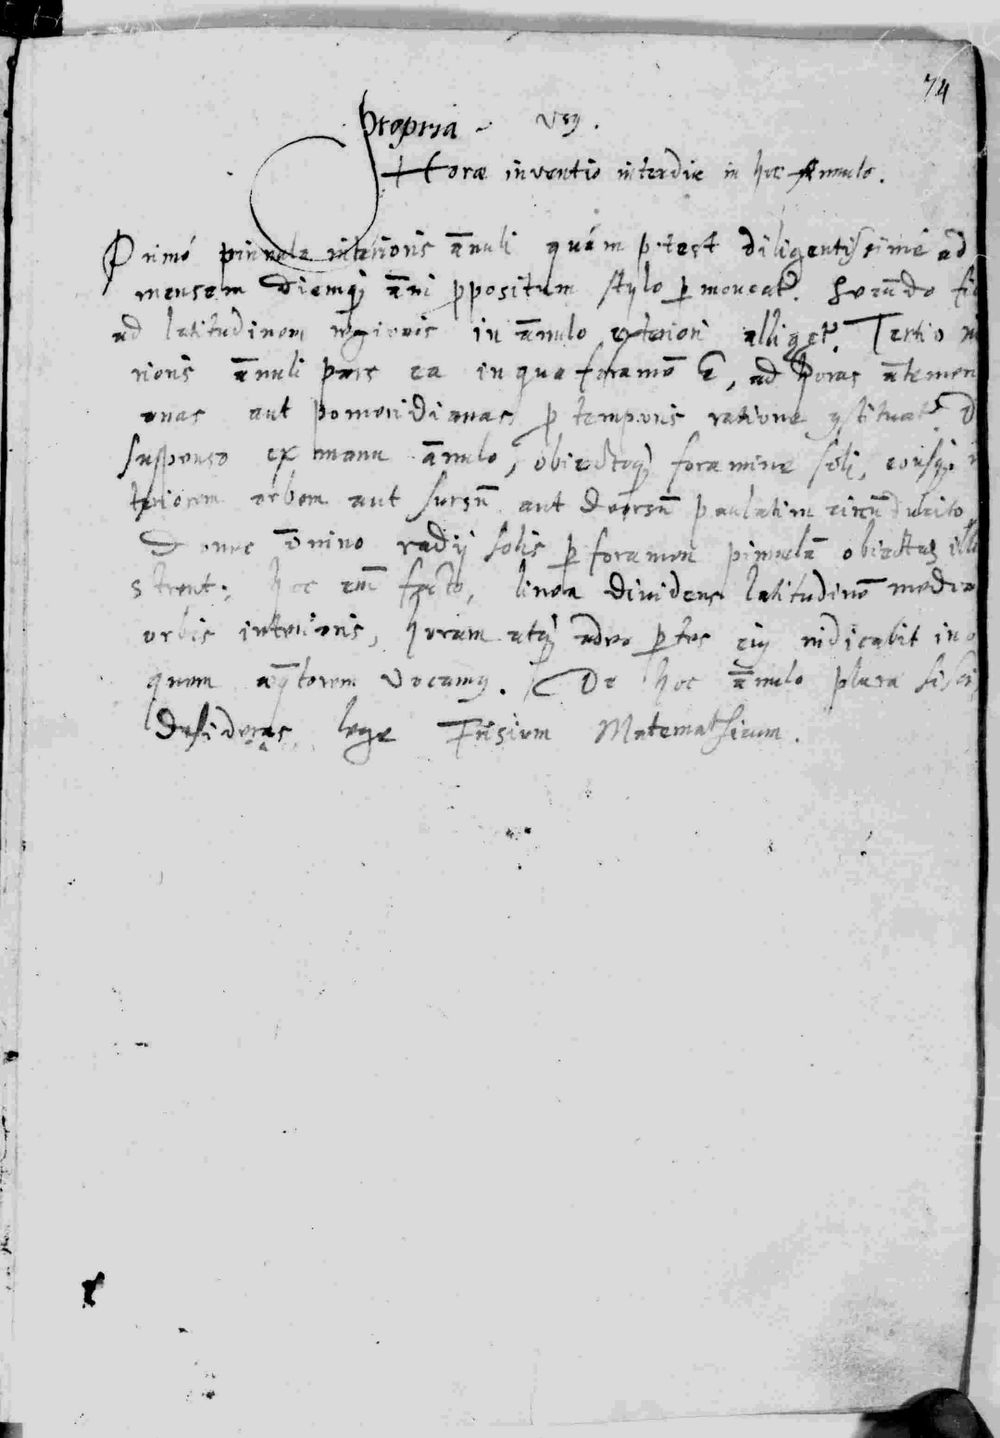 74
Propria Usꝯ.
Horæ inventio interdie in hoc Annulo.
Primó pinnula interioris āuli quám potest diligentissimé ad
mensem diemqꝫ āni ꝓpositum stylo ꝑmoveat᷑. Secūdo
ad latitudinem regionis in ānulo exteriori alliget᷑. Tertio
rioris ānuli pars ea in qua foramē E, ad horas ātemeri
anas aut pomeridianas ꝓ temporis ratione ꝯstituat᷑. D
suspenso ex manu ānulo, obiectoqꝫ foramine soli, eousqꝫ
teriorem orbem aut sursū aut deorsū paulatim circūducito
Donec ōnino radij solis ꝑ foramen pinnulā obiectas illu
strent; hoc em̄ facto, linea dividens latitudinē mediā
orbis interioris, horam atqꝫ adeo ꝑtes eiꝯ indicabit in
quem aeq̄torem vocamꝯ. De hoc ānulo plura si sci
desideras lege Frisium Matemathicum.